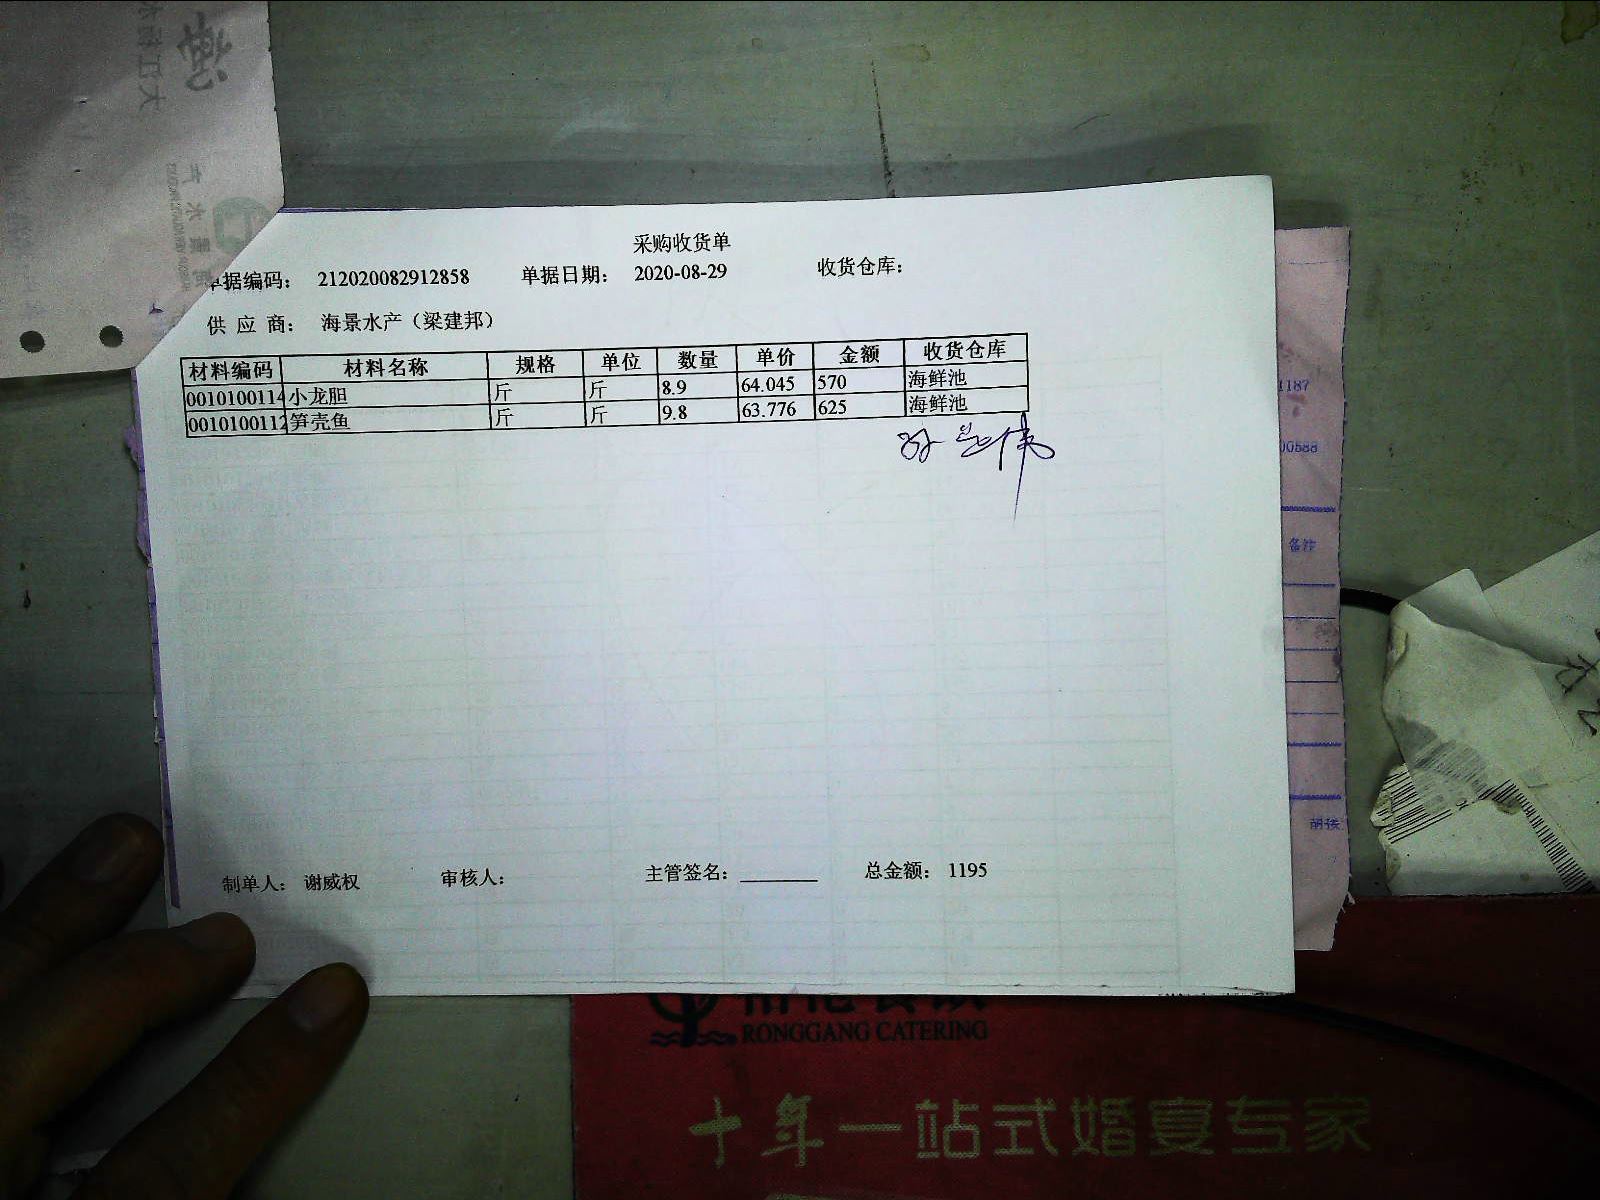 采购收货单
单据编码： 212020082912858 单据日期： 2020-08-29 收货仓库：
供 应 商： 海景水产（梁建邦）
材料编码 材料名称 规格 单位 数量 单价 金额 收货仓库
0010100114 小龙胆 斤 斤 8.9 64.045 570 海鲜池
0010100112 笋壳鱼 斤 斤 9.8 63.776 625 海鲜池
制单人： 谢威权 审核人： 主管签名： 总金额： 1195
1187
00588
备注
RONGGANG CATERING
十年一站式婚宴专家